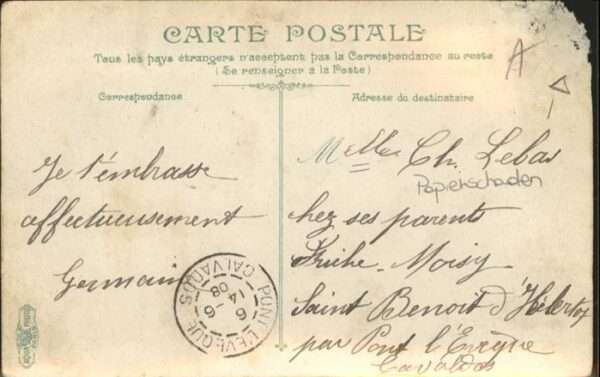 CARTE POSTALE
Tous les pays étrangers n'acceptent pas la Correspondance au recto
(Se renseigner à la Poste)
Correspondance
Adresse du destinataire
A
Je t'embrasse
affectueusement
Germain
Melle Ch. Lebas
Papierschaden
chez ses parents
Friche-Moisy
Saint Benoit d'Hébertot
par Pont l'Evêque
Cavaldos
PONT-L'EVEQUE
CALVADOS
6 -6
14
08